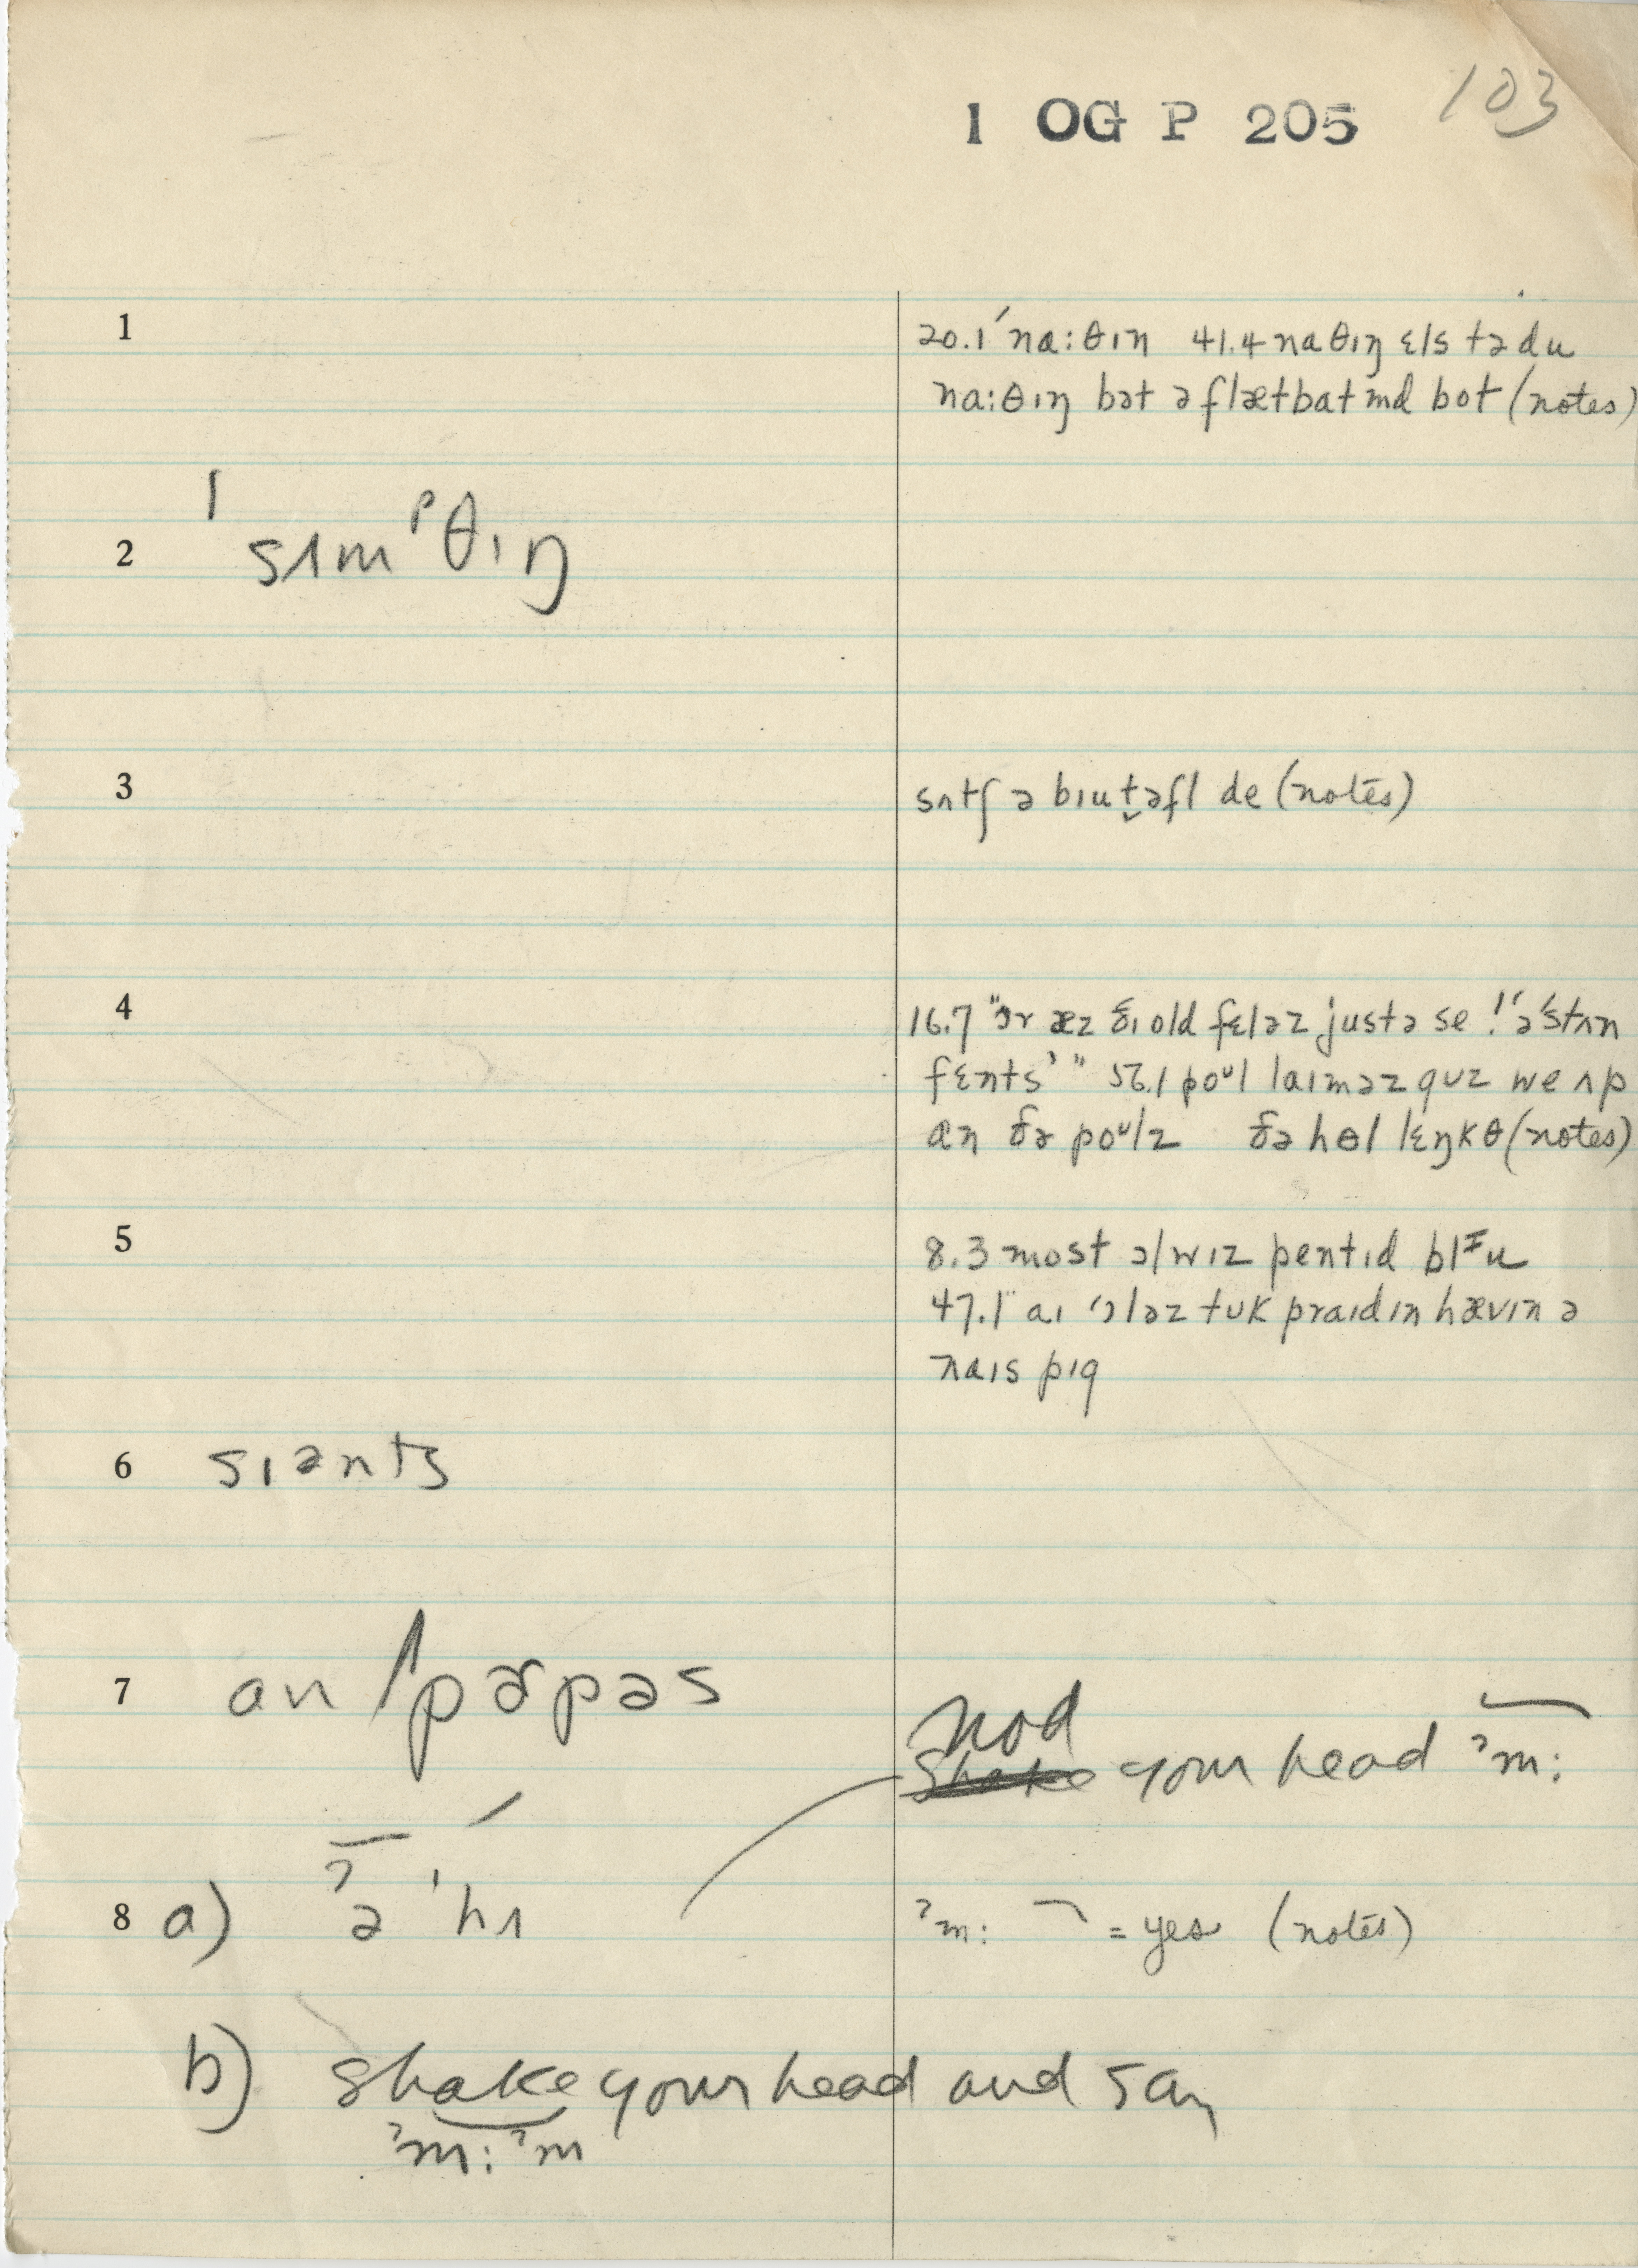 1 OG P 205 103
1 20.1 ˈnɑ:θɪn 41.4 nɑθɪŋ ɛls tə du
nɑ:θɪŋ bət ə flætbɑtmd bot (notes)
2 ˈsʌmᵖθɪŋ
3 sʌtʃ ə bɪut̬əfl de (notes)
4 16.7 "ɔr æz ði old fɛləz justə se ! ə ˈstʌn
fɛnts' " 56.1 poᵘl laɪməz guz we ʌp
ɑn ðə poᵘlz ðə hɵl lɛŋkθ (notes)
5 8.3 most ɔlwɪz pentɪd blᶦu
47.1 aɪ ˈɔləz tuk praɪd ɪn hævɪn ə
naɪs pɪg
6 sɪənts
7 an ˈpɚpəs
nod
Shake your head ˀm:
8 a) ˀə ˈhʌ ˀm: = yes (notes)
b) shake your head and say
ˀm: ˀm